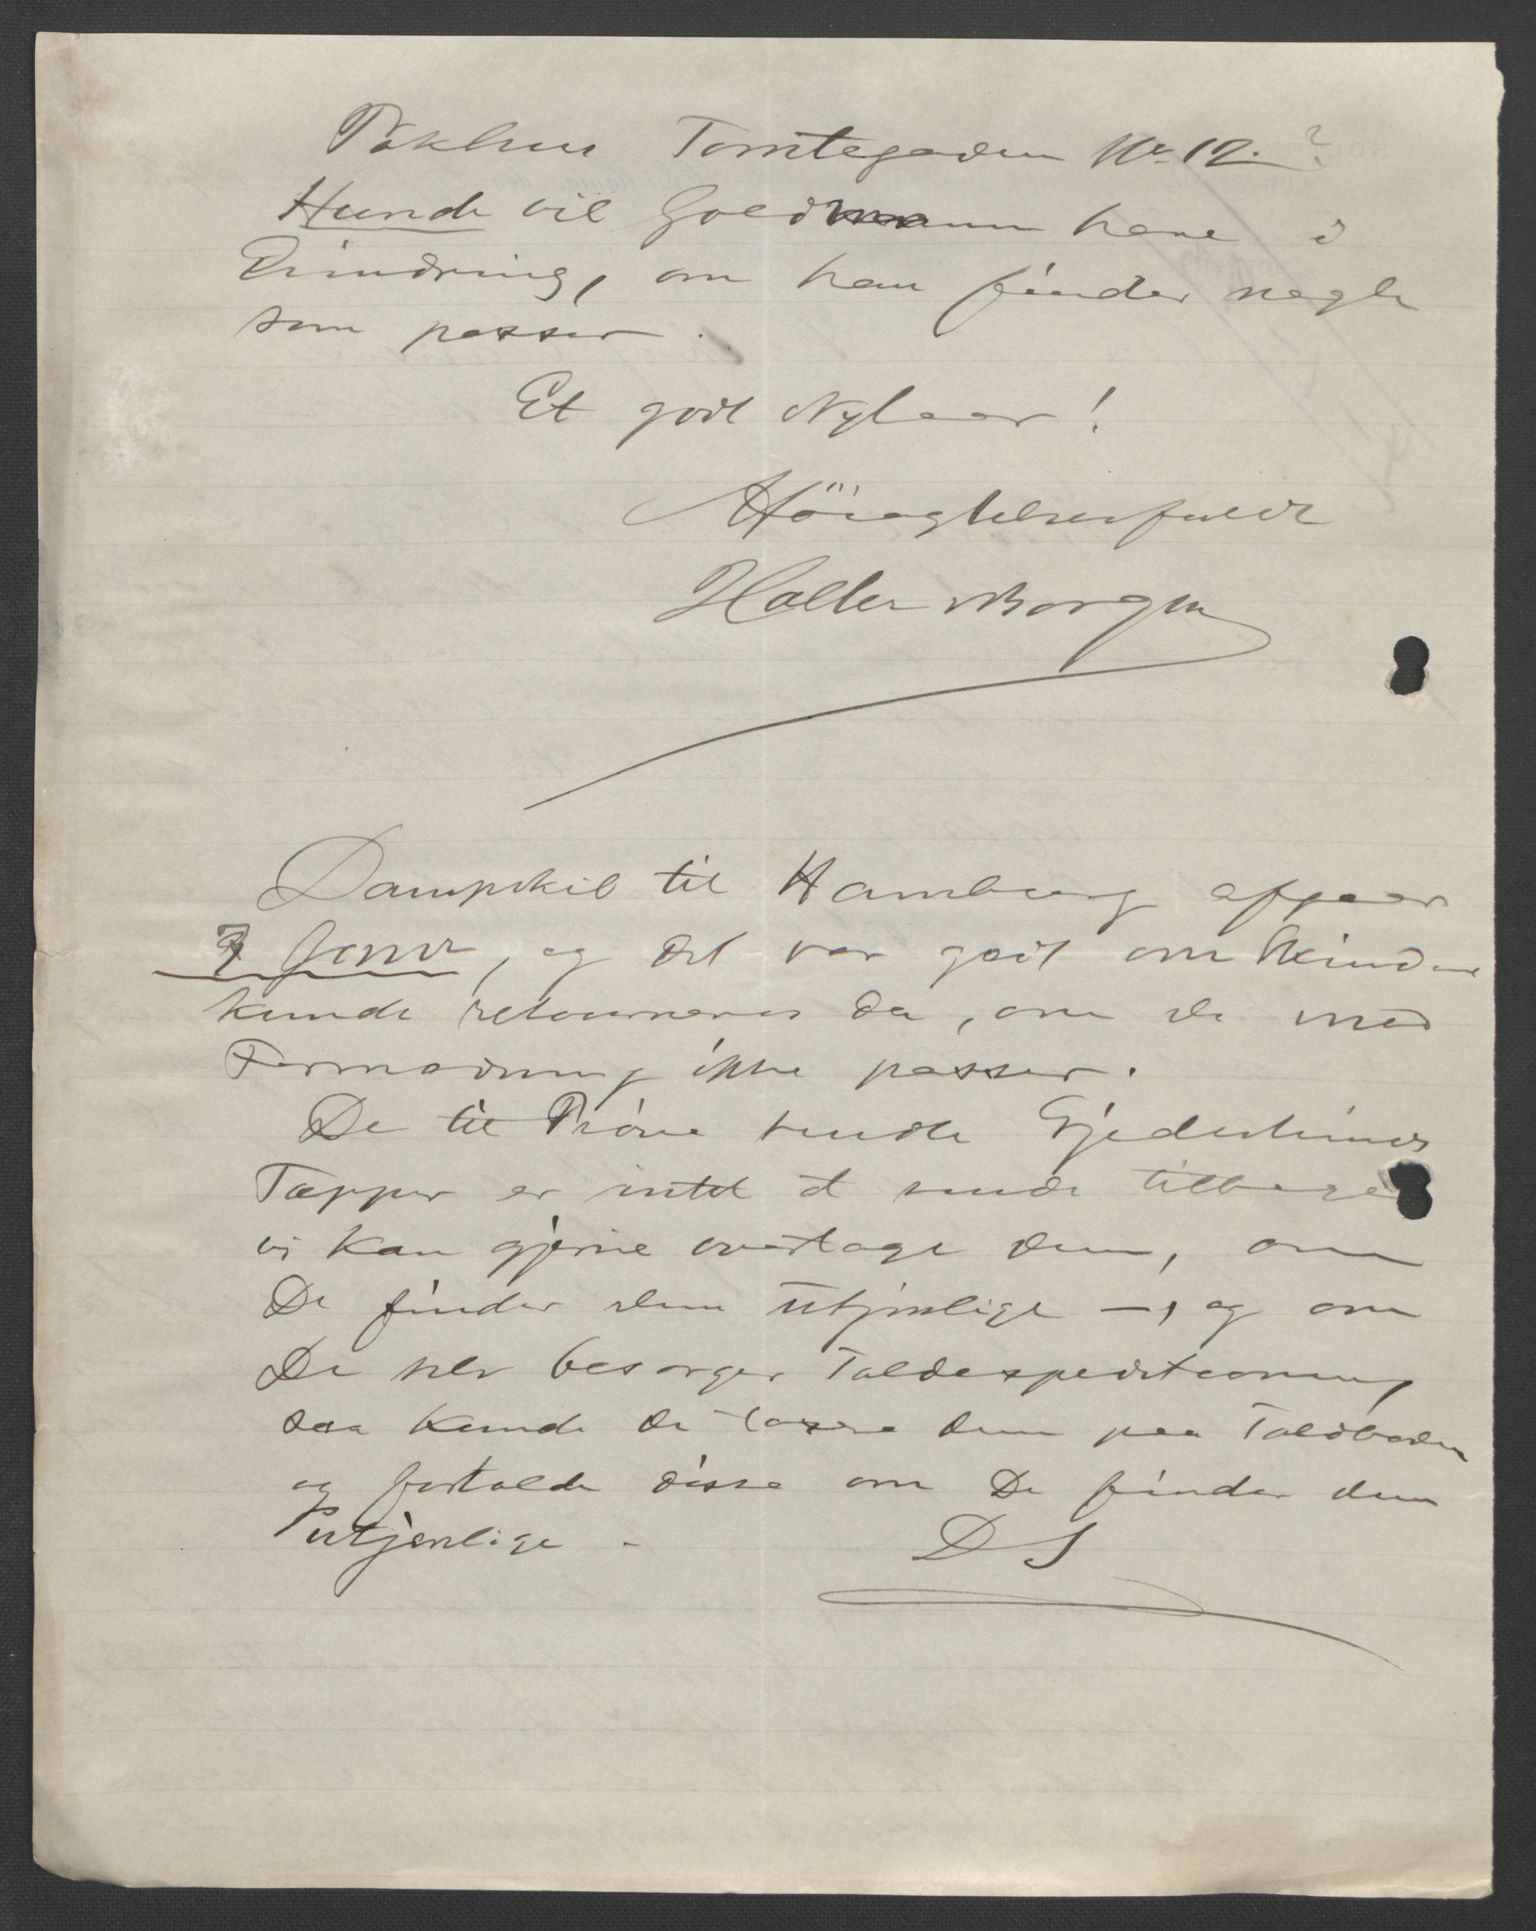 Pakhus Tomtegaden No 12. ?
Hunde vil Goldmann have i
Erindring, om han finder nogle
som passer.
Et godt Nytaar!
Höiagtelsesfuldt
Møller & Borgen
Dampskib til Hamburg afgaar
7 Janr, og det var godt om Skindene
kunde retourneres da, om de mod
Formodning ikke passer.
De til Pröve sendte Gjedeskinds
Tæpper er intet at sende tilbage
vi kan gjerne overtage dem, om
De finder dem utjenlige —, og om
De selv besørger Toldexpeditionen,
saa kunde De lade dem paa Toldboden
og fortolde disse om De finder dem
utjenlige -
D S